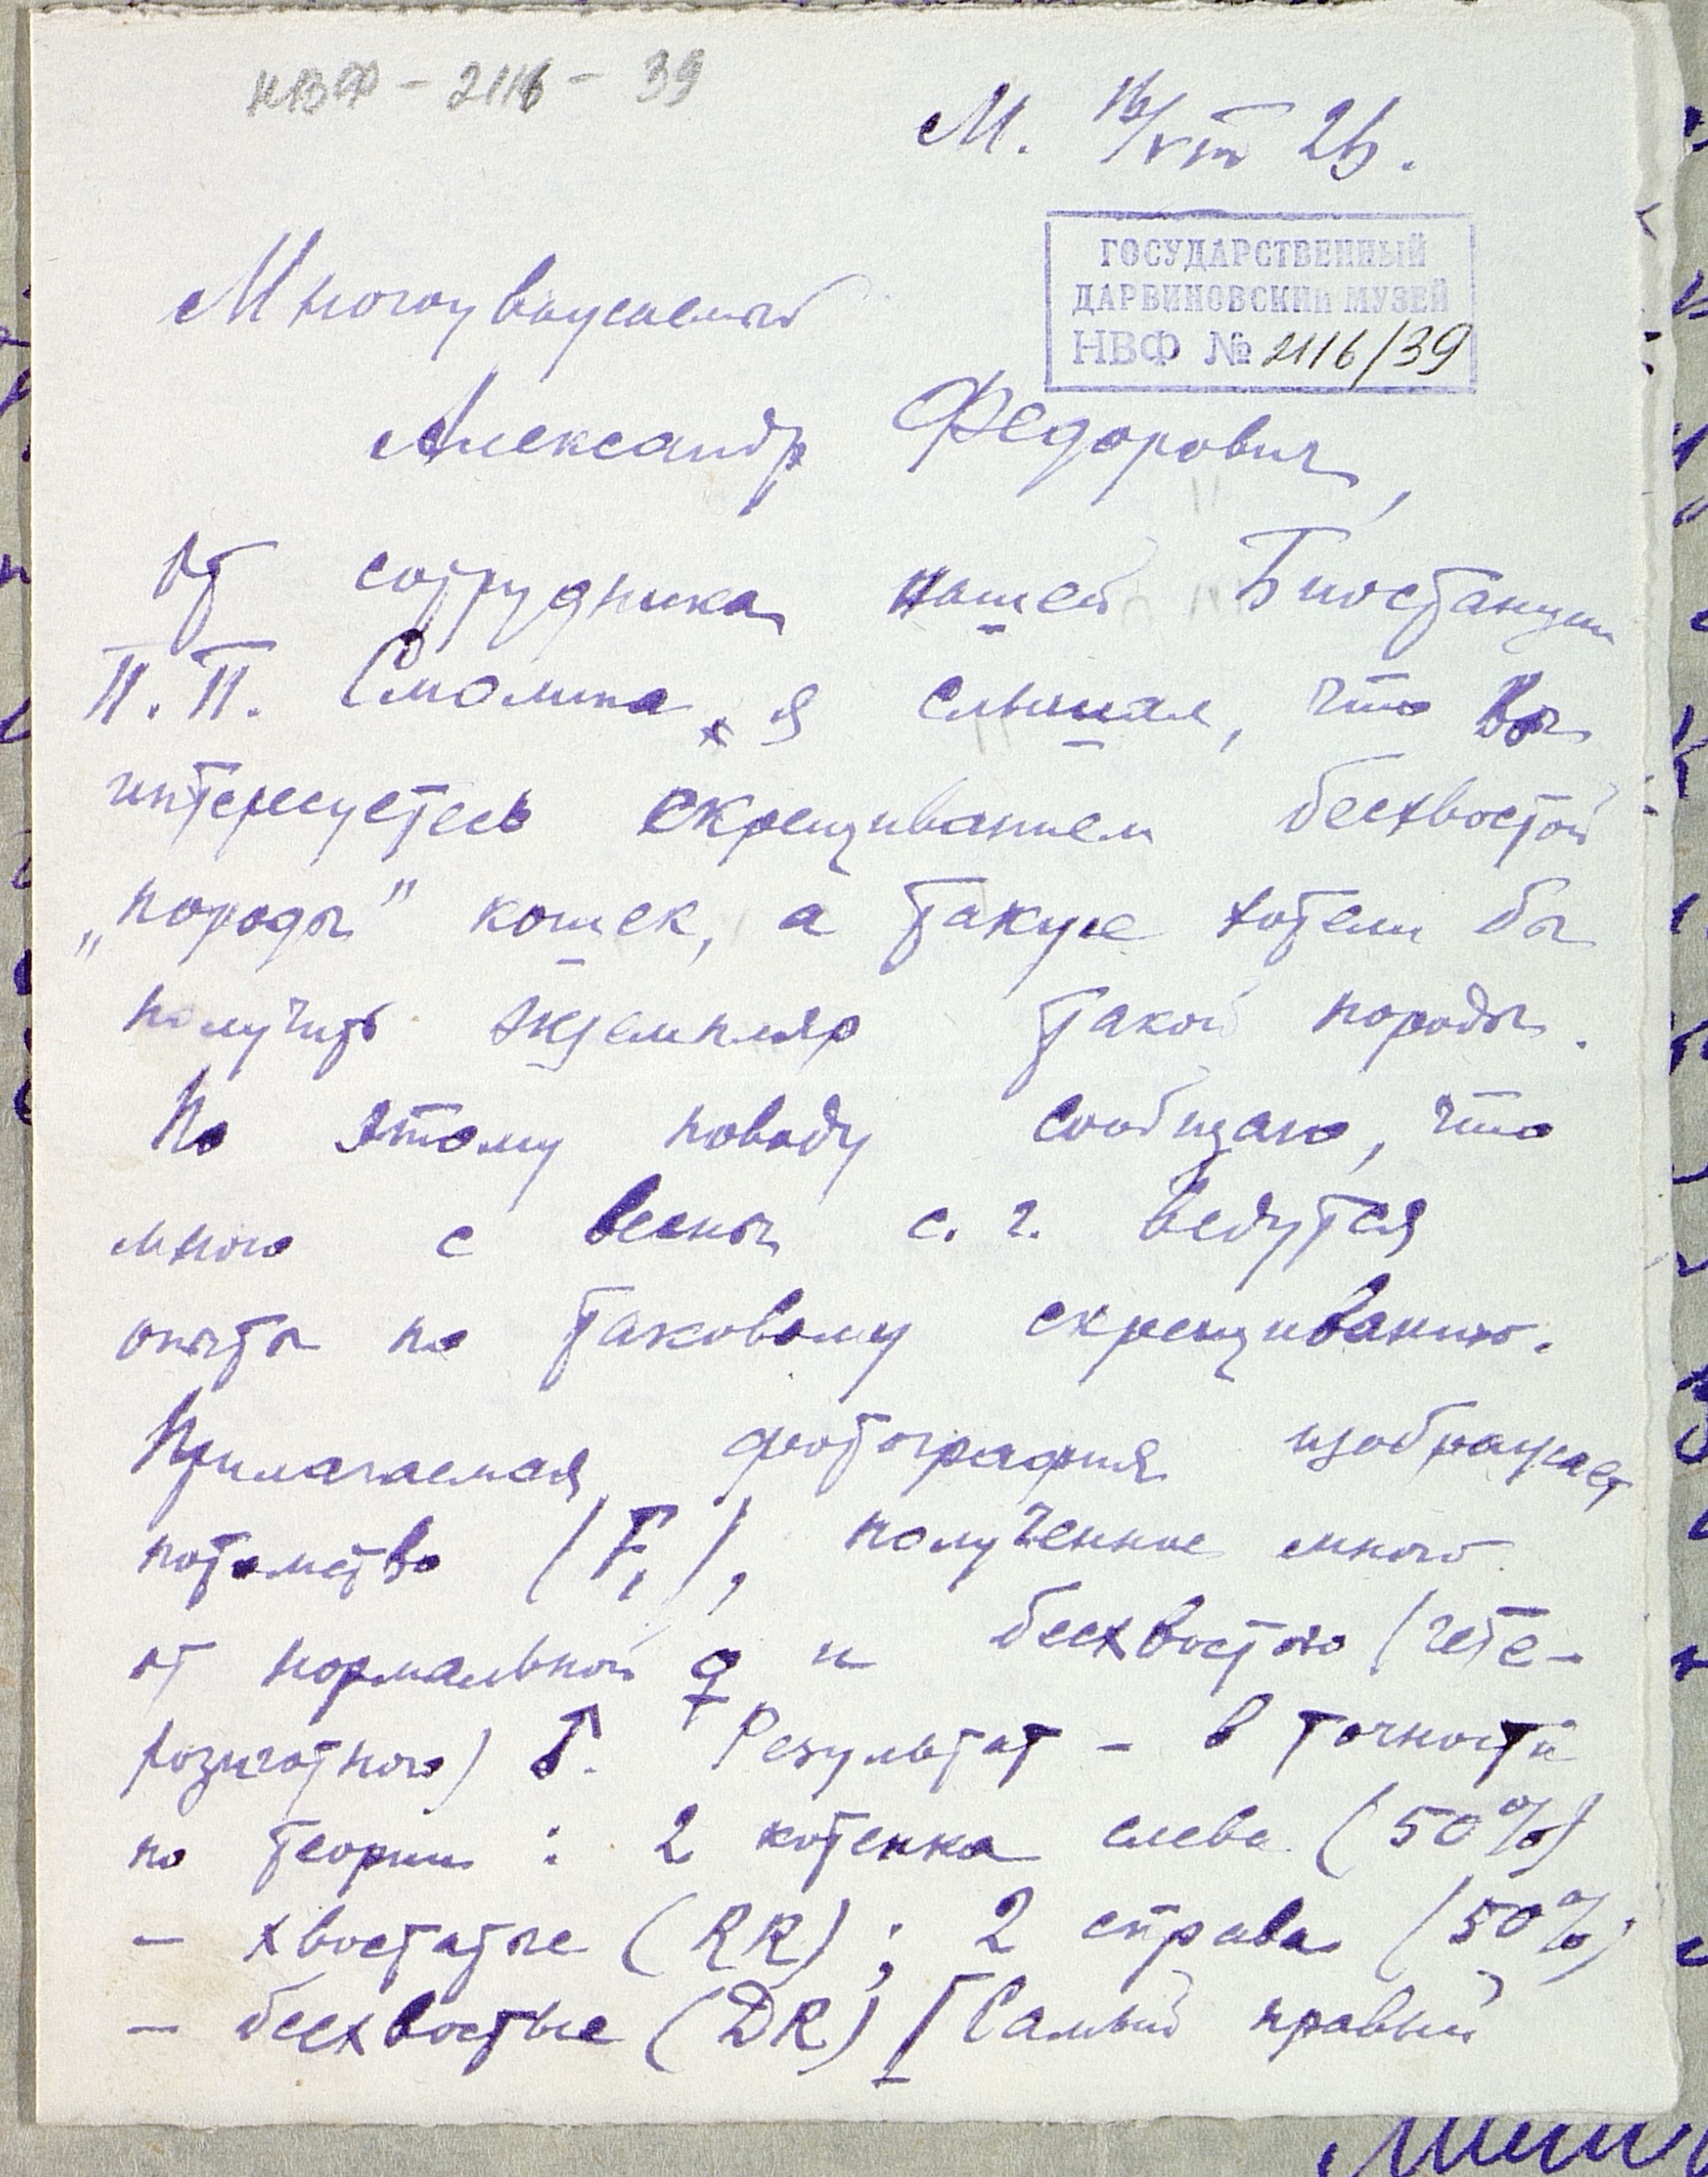 НВФ - 2116 - 39
М. 16/VIII 26.
ГОСУДАРСТВЕННЫЙ
ДАРВИНОВСКИЙ МУЗЕЙ
НВФ № 2116/39
Многоуважаемый
Александр Федорович,
От сотрудника нашей Биостанции
П. П. Смолина я слышал, что Вы
интересуетесь скрещиванием бесхвостой
„породы" кошек, а также хотели бы
получить экземпляр такой породы.
По этому поводу сообщаю, что
мною с весны с. г. ведутся
опыты по таковому скрещиванию.
Прилагаемая фотография изображает
потомство (F₁), полученное мною
от нормальной ♀ и бесхвостого (гете-
розиготного) ♂. Результат - в точности
по теории: 2 котенка слева (50%)
- хвостатые (RR); 2 справа (50%)
- бесхвостые (DR) [Самый правый